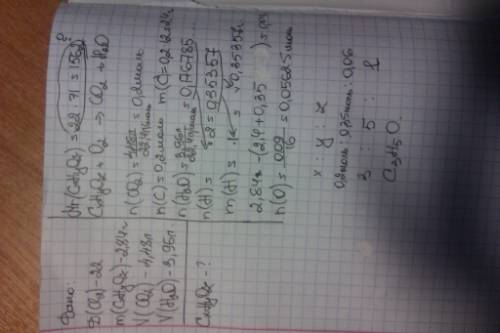 Дано:
D(Cl₂)-22
m(CxHyOz)-2,84г
V(CO₂)-4,48л
V(H₂O)-3,96л
CxHyOz-?
Mr(CxHyOz)=22·71=1562?
CxHyOz+O₂→CO₂+H₂O
n(CO₂)=4,48л/22,4л/моль=0,2моль
n(C)=0,2моль m(C)=0,2·12=2,4г
n(H₂O)=3,96л/22,4л/моль=0,176785
n(H)= ·2=0,35357
m(H)= 0,35357г
2,84г-(2,4+0,35
n(O)=0,09/16=0,05625моль
x : y : z
0,2моль:0,35моль:0,06
3 : 5 : 1
C₃H₅O.